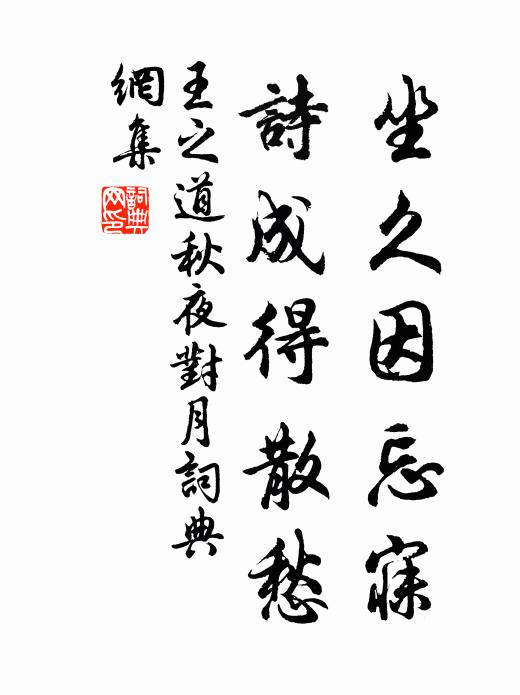 坐久因忘寐
詩成得散愁
王之道秋夜對月詞典
網集
詞典
网印